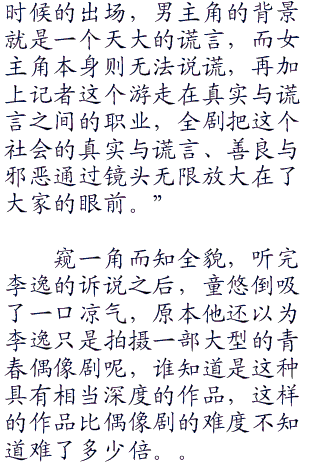 时候的出场，男主角的背景
就是一个天大的谎言，而女
主角本身则无法说谎，再加
上记者这个游走在真实与谎
言之间的职业，全剧把这个
社会的真实与谎言、善良与
邪恶通过镜头无限放大在了
大家的眼前。”
窥一角而知全貌，听完
李逸的诉说之后，童悠倒吸
了一口凉气，原本他还以为
李逸只是拍摄一部大型的青
春偶像剧呢，谁知道是这种
具有相当深度的作品，这样
的作品比偶像剧的难度不知
道难了多少倍。。